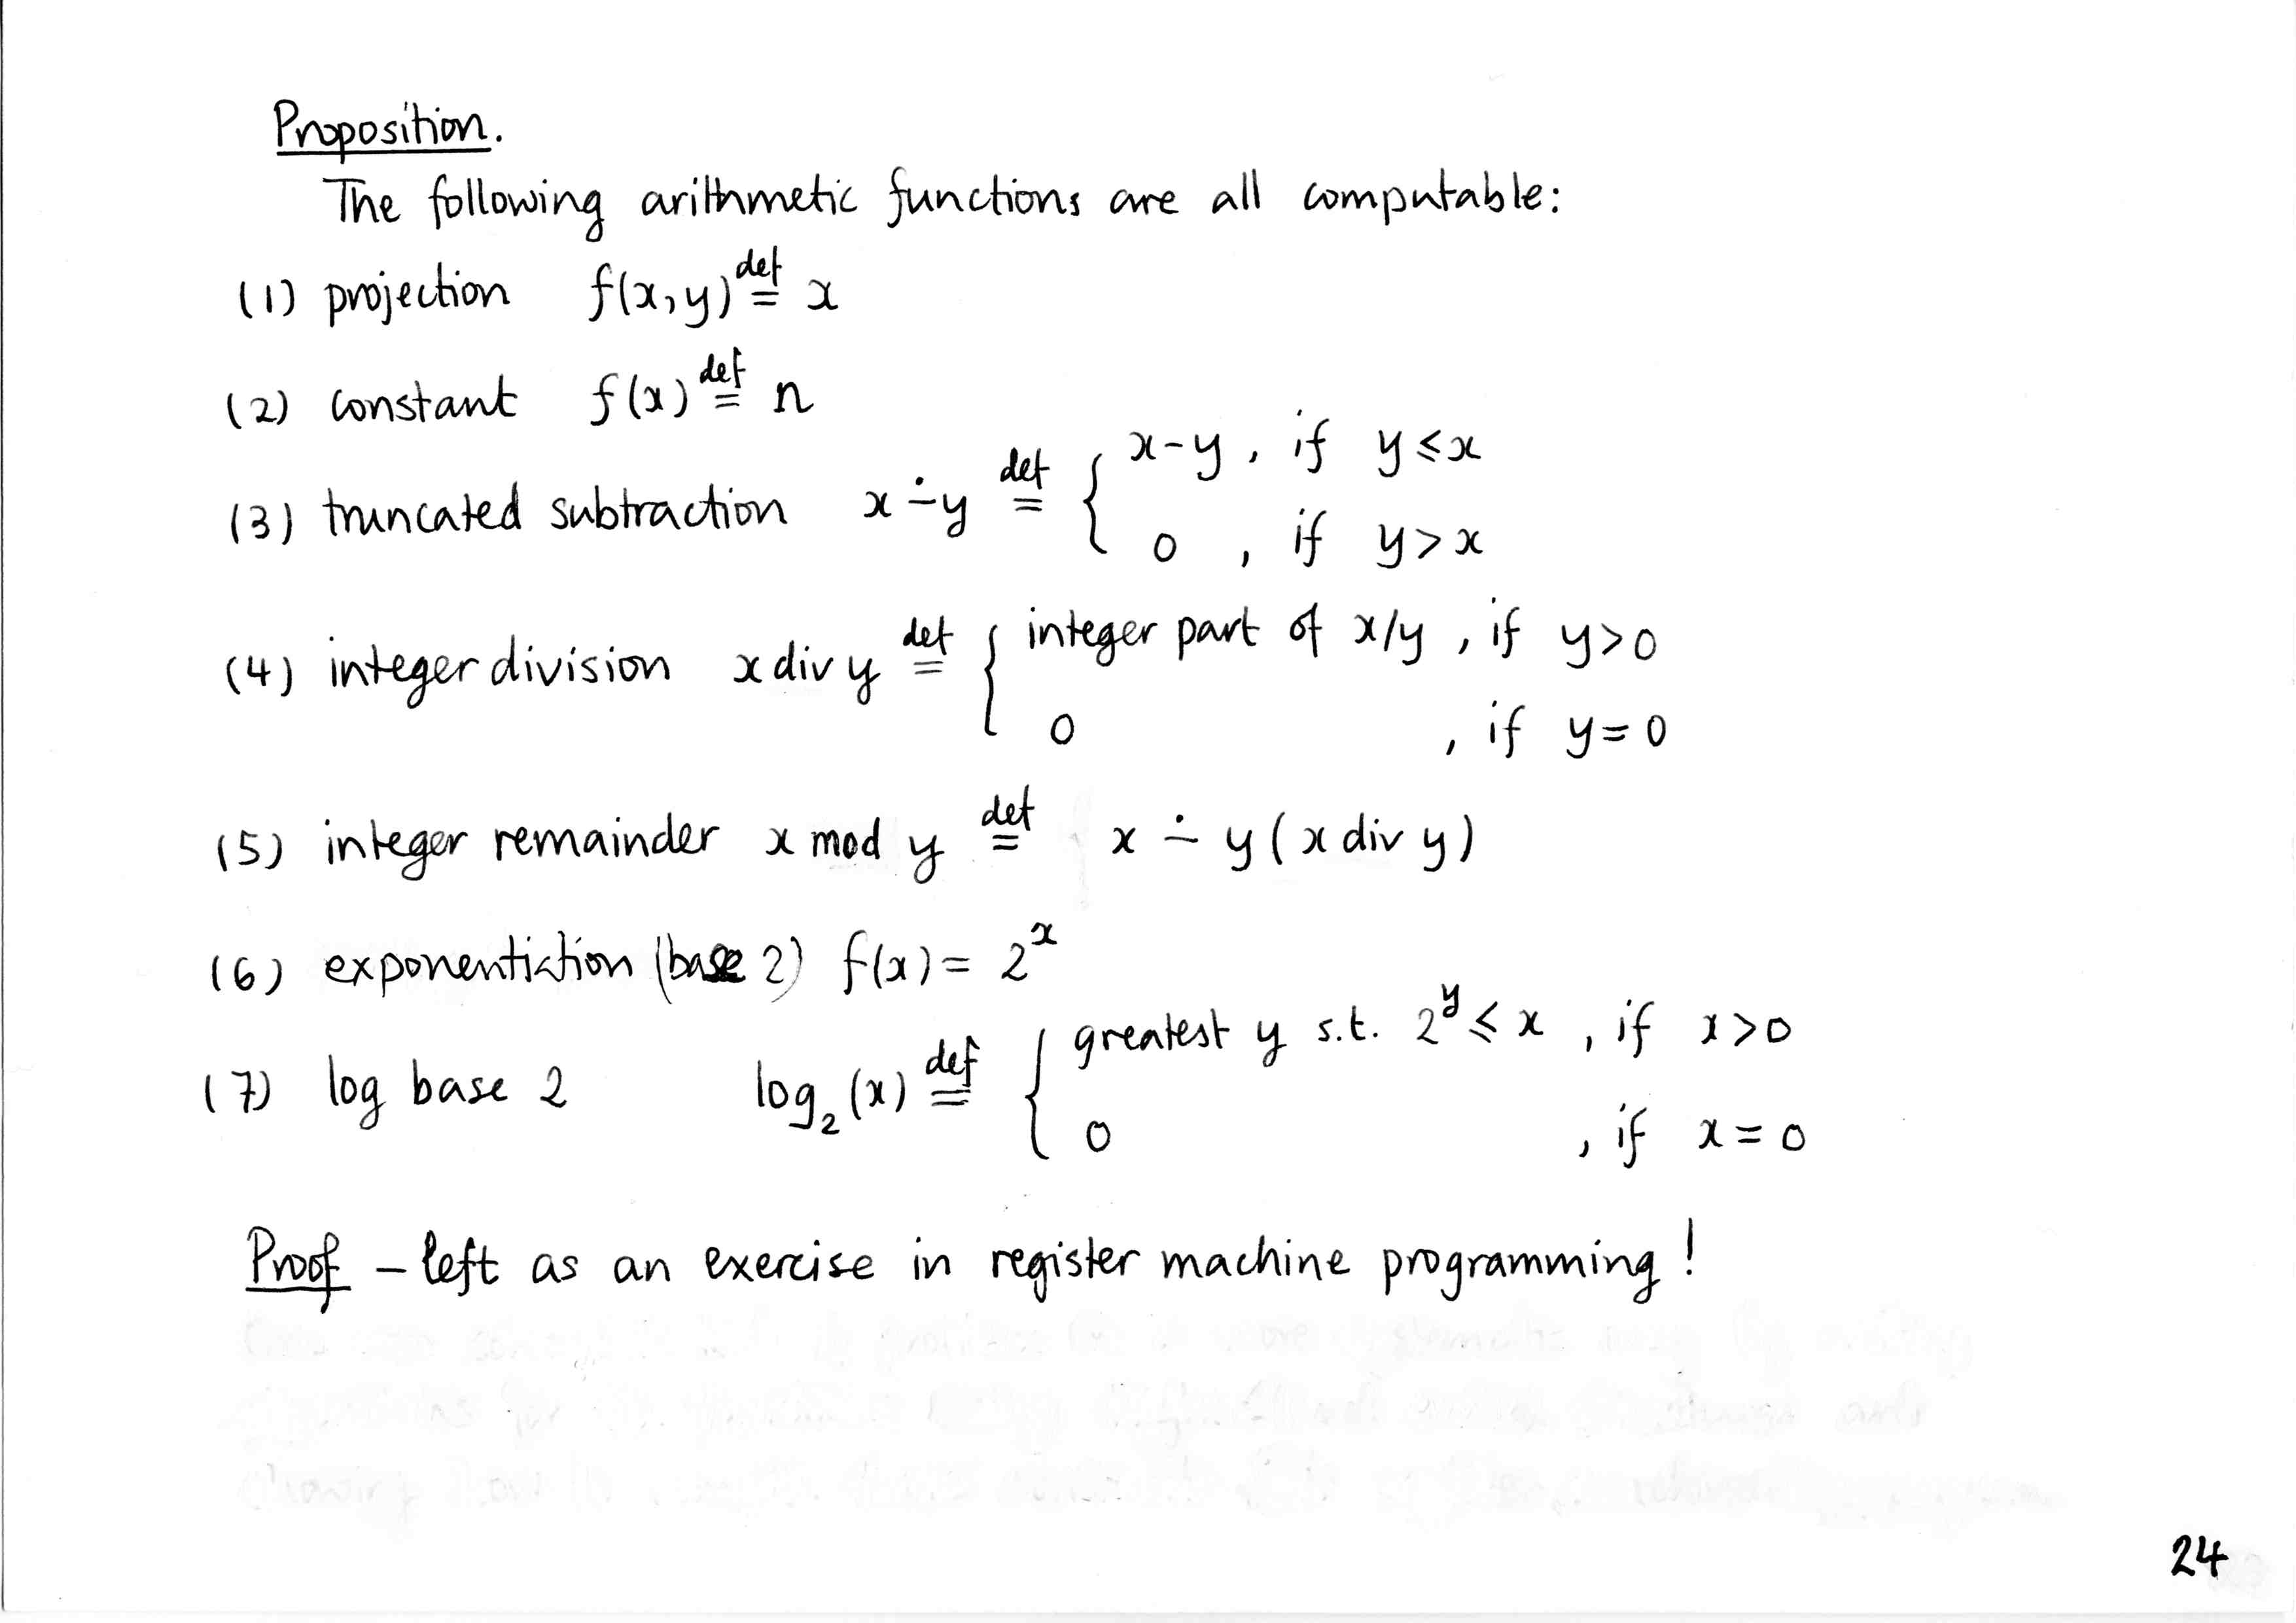 Proposition.
The following arithmetic functions are all computable:
(1) projection f(x,y) def= x
(2) constant f(x) def= n
(3) truncated subtraction x ∸ y def= { x-y, if y ≤ x
0, if y > x
(4) integer division x div y def= { integer part of x/y, if y>0
0, if y=0
(5) integer remainder x mod y def= x ∸ y(x div y)
(6) exponentiation (base 2) f(x) = 2^x
(7) log base 2 log₂(x) def= { greatest y s.t. 2^y ≤ x, if x>0
0, if x=0
Proof - left as an exercise in register machine programming!
24